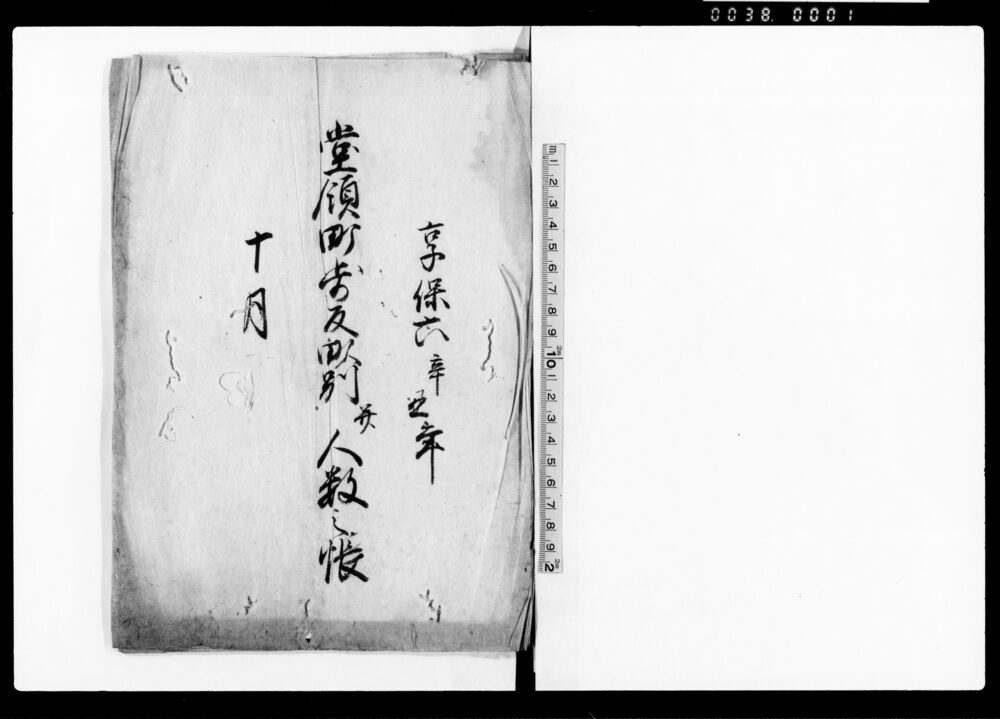 0038. 0001
享保六辛丑年
堂領町歩反畝別并人数之帳
十月
m 1 2 3 4 5 6 7 8 9 10 1 2 3 4 5 6 7 8 9 2